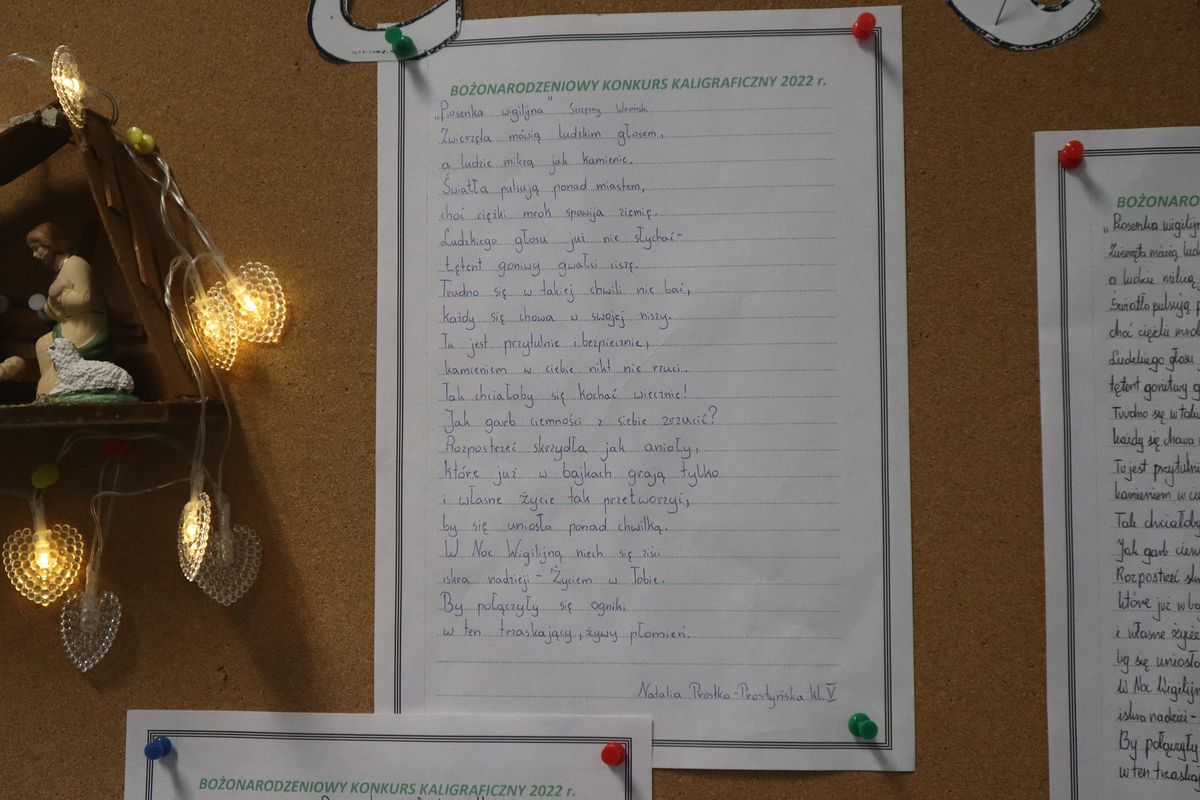 BOŻONARODZENIOWY KONKURS KALIGRAFICZNY 2022 r.
„Piosenka wigilijna" Szczęsny Wroński
Zwierzęta mówią ludzkim głosem,
a ludzie milczą jak kamienie.
Światła pulsują ponad miastem,
choć ciężki mrok spowija ziemię.
Ludzkiego głosu już nie słychać-
tętent goniwy gwałci ciszę.
Trudno się w takiej chwili nie bać,
każdy się chowa w swojej niszy.
Tu jest przytulnie i bezpiecznie,
kamieniem w ciebie nikt nie rzuci.
Tak chciałoby się kochać wiecznie!
Jak garb ciemności z siebie zrzucić?
Rozpostrzeć skrzydła jak anioły,
które już w bajkach grają tylko
i własne życie tak przetworzyć,
by się uniosła ponad chwilką.
W Noc Wigilijną niech się ziści
iskra nadzieji - Życiem w Tobie.
By połączyły się ogniki
w ten trzaskający, żywy płomień.
Natalia Prostko-Prostyńska kl. V
BOŻONARO
„Piosenka wigilijn
Zwierzęta mówią lud
a ludzie milczą
Światła pulsują p
choć ciężki mro
Ludzkiego głosu
tętent gonitwy g
Trudno się w tak
każdy się chowa
Tu jest przytulni
kamieniem w
Tak chciałoby
Jak garb ciem
Rozpostrzeć sk
które już w b
i własne życie
by się uniosł
W Noc Wigilij
iskra nadziei -
By połączyły
w ten trzaska
BOŻONARODZENIOWY KONKURS KALIGRAFICZNY 2022 r.